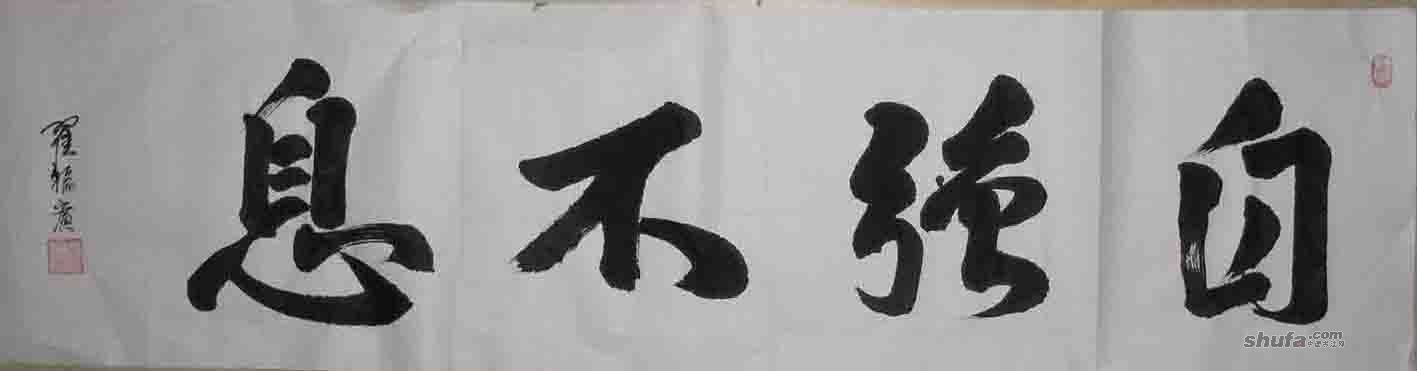 自强不息
shufa.com